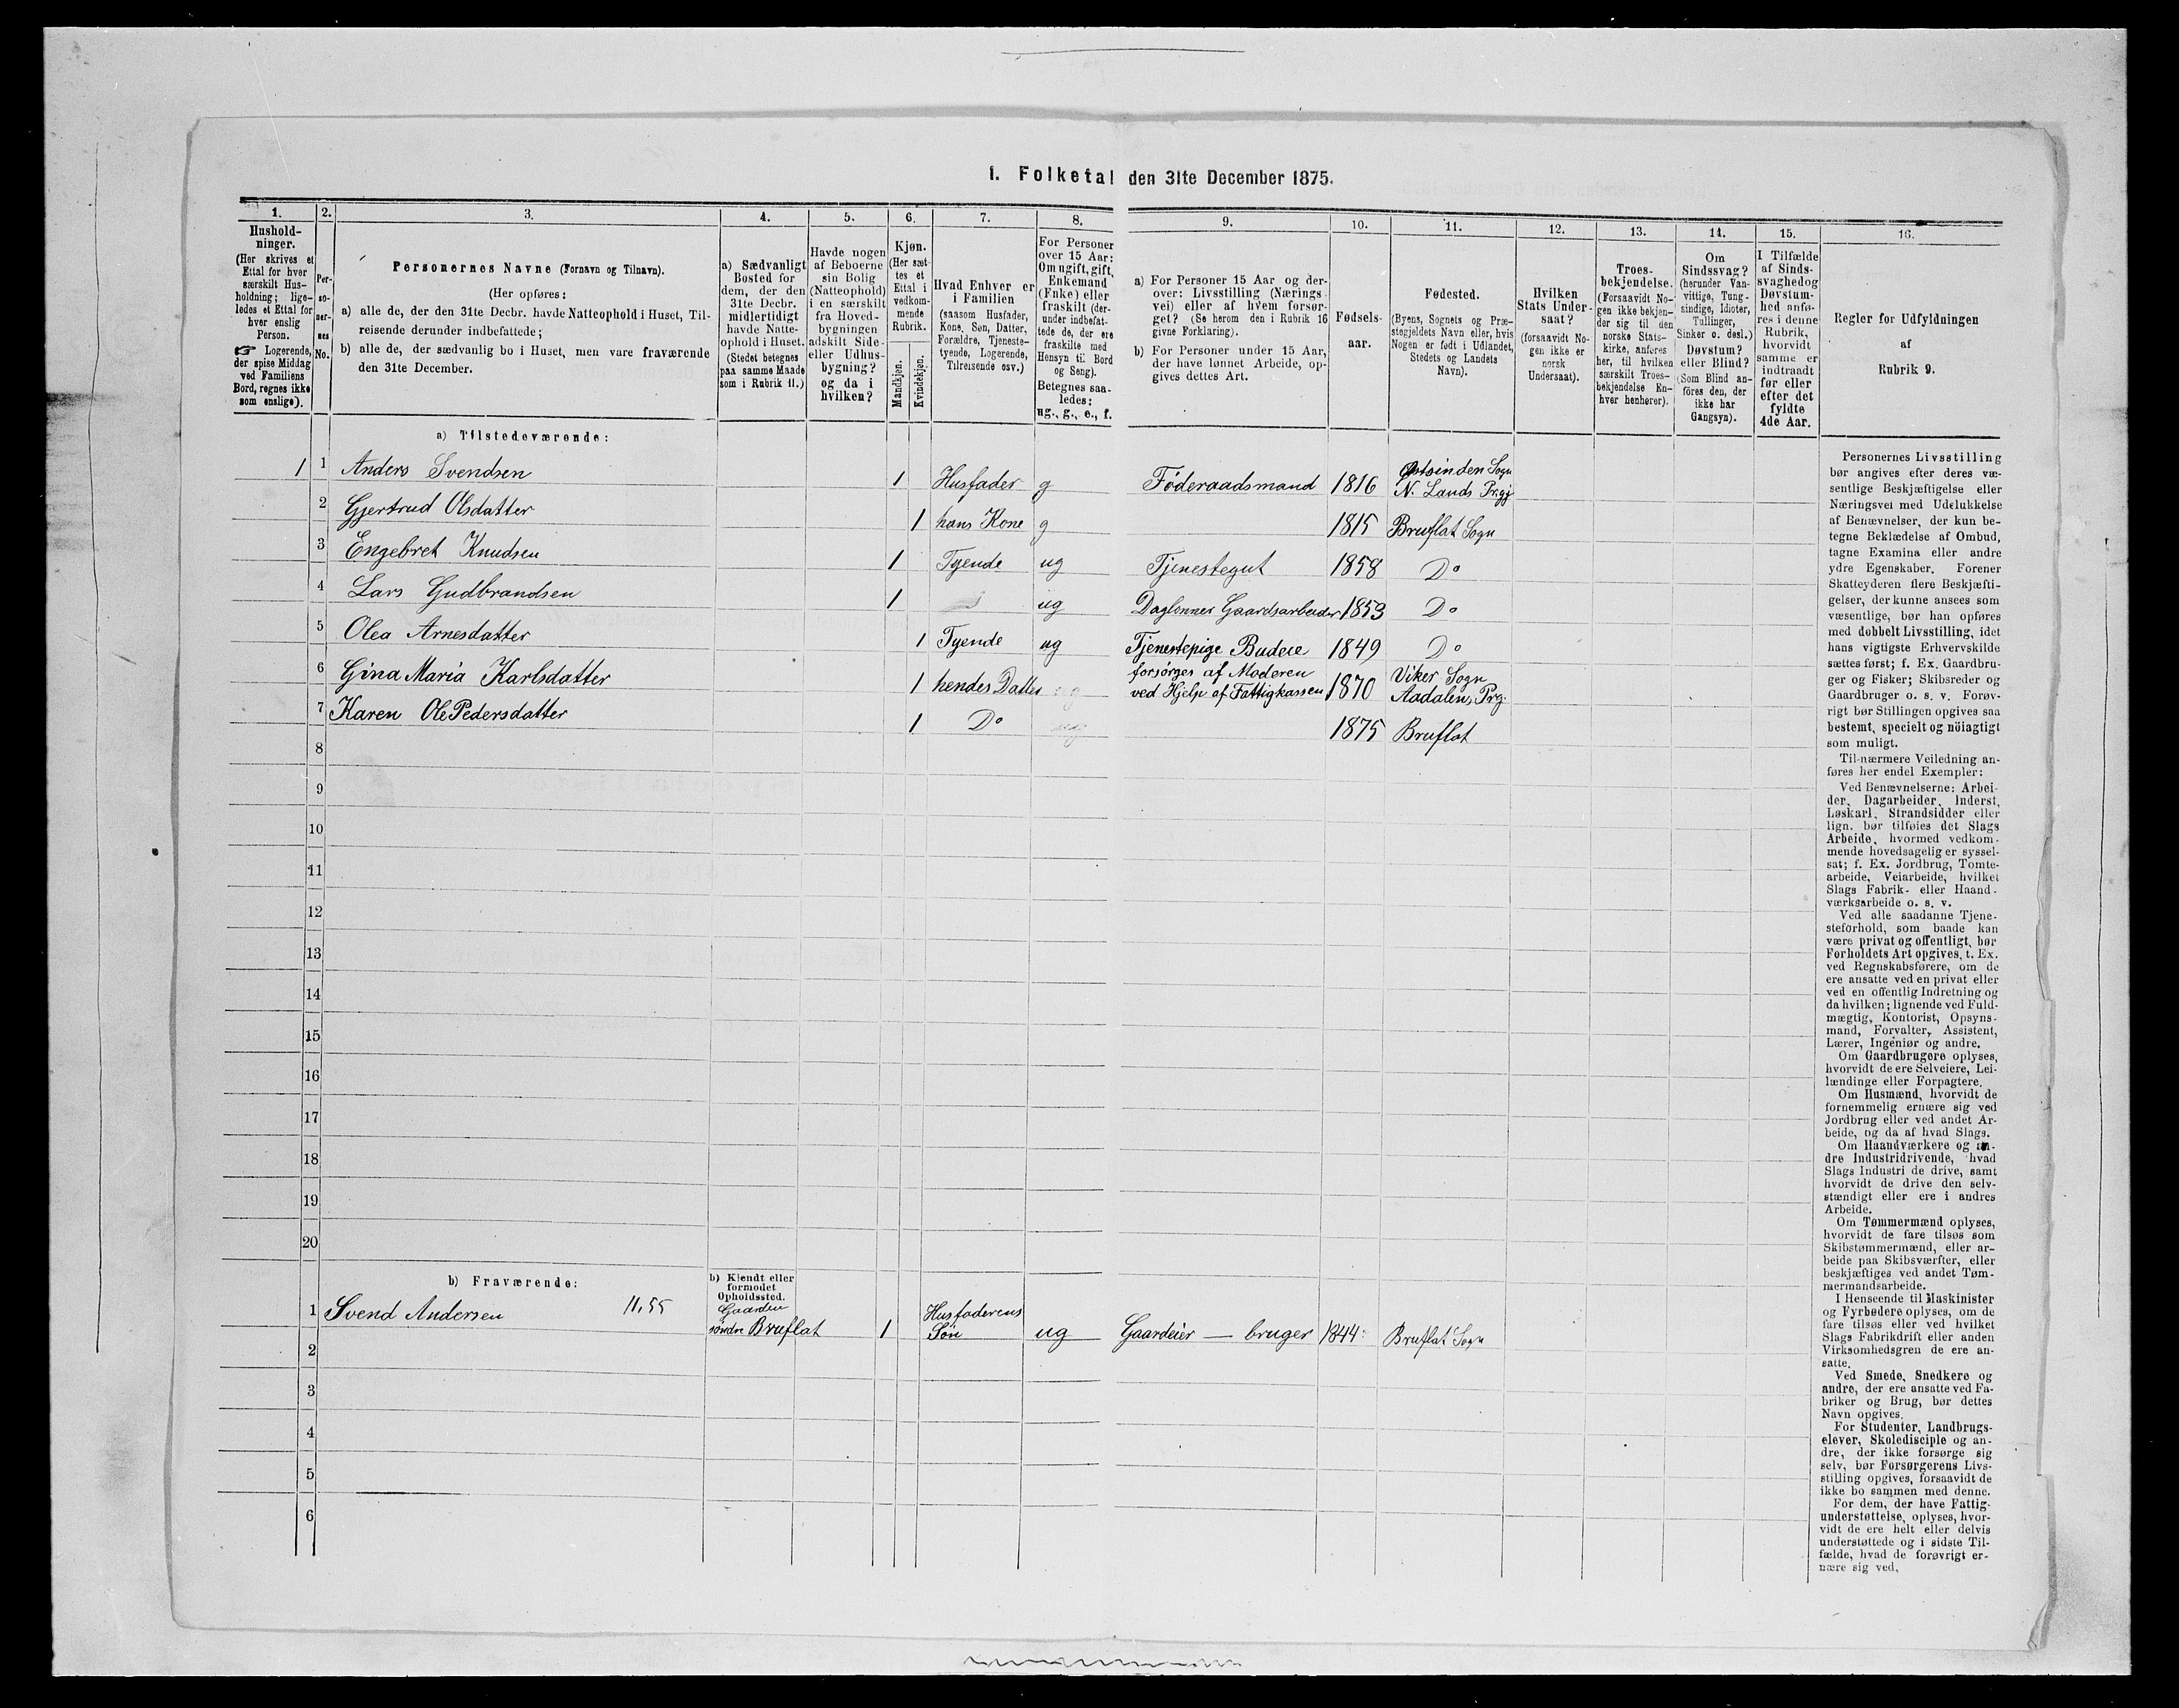 1. Folketal den 31te December 1875.
1.
2.
3.
4.
5.
6.
7.
8.
9.
10.
11.
12.
13.
14.
15.
16.
Hushold-
ninger.
(Her skrives et
Ettal for hver
særskilt Hus-
holdning; lige-
ledes et Ettal for
hver enslig
Person.
☞ Logerende,
der spise Middag
ved Familiens
Bord, regnes ikke
som enslige).
Per-
so-
ner-
nes
No.
Personernes Navne (Fornavn og Tilnavn).
(Her opføres:
a) alle de, der den 31te Decbr. havde Natteophold i Huset, Til-
reisende derunder indbefattede;
b) alle de, der sædvanlig bo i Huset, men vare fraværende
den 31te December.
a) Sædvanligt
Bosted for
dem, der den
31te Decbr.
midlertidigt
havde Natte-
ophold i Huset.
(Stedet betegnes
paa samme Maade
som i Rubrik 11.)
Havde nogen
af Beboerne
sin Bolig
(Natteophold)
i en særskilt
fra Hoved-
bygningen
adskilt Side-
eller Udhus-
bygning?
og da i
hvilken?
Kjøn.
(Her sæt-
tes et
Ettal i
vedkom-
mende
Rubrik.
Mandkjøn.
Kvindekjøn.
Hvad Enhver er
i Familien
(saasom Husfader,
Kone, Søn, Datter,
Forældre, Tjeneste-
tyende, Logerende,
Tilreisende osv.)
For Personer
over 15 Aar:
Om ugift, gift,
Enkemand
(Enke) eller
fraskilt (der-
under indbefat-
tede de, der ere
fraskilte med
Hensyn til Bord
og Seng).
Betegnes saa-
ledes:
ug., g., e., f.
a) For Personer 15 Aar og der-
over: Livsstilling (Nærings-
vei) eller af hvem forsør-
get? (Se herom den i Rubrik 16
givne Forklaring).
b) For Personer under 15 Aar,
der have lønnet Arbeide, op-
gives dettes Art.
Fødsels-
aar.
Fødested.
(Byens, Sognets og Præ-
stegjeldets Navn eller, hvis
Nogen er født i Udlandet,
Stedets og Landets
Navn).
Hvilken
Stats Under-
saat?
(forsaavidt No-
gen ikke er
norsk
Undersaat).
Troes-
bekjendelse.
(Forsaavidt No-
gen ikke bekjen-
der sig til den
norske Stats-
kirke, anføres
her, til hvilken
særskilt Troes-
bekjendelse En-
hver henhører).
Om
Sindssvag?
(herunder Van-
vittige, Tung-
sindige, Idioter,
Tullinger,
Sinker o. desl.)
Døvstum?
eller Blind?
(Som Blind an-
føres den, der
ikke har
Gangsyn).
I Tilfælde
af Sinds-
svaghed og
Døvstum-
hed anfø-
res i denne
Rubrik,
hvorvidt
samme er
indtraadt
før eller
efter det
fyldte
4de Aar.
Regler for Udfyldningen
af
Rubrik 9.
a) Tilstedeværende:
1 1 Anders Svendsen 1 Husfader g Føderaadsmand 1816 Østsinden Sogn
N. Lands Prgj
2 Gjertrud Olsdatter 1 hans Kone g 1815 Bruflat Sogn
3 Engebret Knudsen 1 Tyende ug Tjenestegut 1858 Do
4 Lars Gudbrandsen 1 ug Daglønner Gaardsarbeider 1853 Do
5 Olea Arnesdatter 1 Tyende ug Tjenestepige Budeie 1849 Do
6 Gina Maria Karlsdatter 1 hendes Datter forsørges af Moderen
ved Hjelp af Fattigkassen 1870 Viker Sogn
Aadalens Prg.
7 Karen Ole Pedersdatter 1 Do ug 1875 Bruflat
8
9
10
11
12
13
14
15
16
17
18
19
20
b) Fraværende:
b) Kjendt eller
formodet
Opholdssted.
1 Svend Andersen 11,55 Gaarden
søndre Bruflat 1 Husfaderens
Søn ug Gaardeier — bruger 1844 Bruflat Sogn
2
3
4
5
6
Personernes Livsstilling
bør angives efter deres væ-
sentlige Beskjæftigelse eller
Næringsvei med Udelukkelse
af Benævnelser, der kun be-
tegne Beklædelse af Ombud,
tagne Examina eller andre
ydre Egenskaber. Forener
Skatteyderen flere Beskjæfti-
gelser, der kunne ansees som
væsentlige, bør han opføres
med dobbelt Livsstilling, idet
hans vigtigste Erhvervskilde
sættes først; f. Ex. Gaardbru-
ger og Fisker; Skibsreder og
Gaardbruger o. s. v. Forøv-
rigt bør Stillingen opgives saa
bestemt, specielt og nöiagtigt
som muligt.
Til nærmere Veiledning an-
føres her endel Exempler:
Ved Benævnelserne: Arbei-
der, Dagarbeider, Inderst,
Løskarl, Strandsidder eller
lign. bør tilføies det Slags
Arbeide, hvormed vedkom-
mende hovedsagelig er syssel-
sat; f. Ex. Jordbrug, Tomte-
arbeide, Veiarbeide, hvilket
Slags Fabrik- eller Haand-
værksarbeide o. s. v.
Ved alle saadanne Tjene-
steforhold, som baade kan
være privat og offentligt, bør
Forholdets Art opgives, t. Ex.
ved Regnskabsførere, om de
ere ansatte ved en privat eller
ved en offentlig Indretning og
da hvilken; lignende ved Fuld-
mægtig, Kontorist, Opsyns-
mand, Forvalter, Assistent,
Lærer, Ingeniør og andre.
Om Gaardbrugere oplyses,
hvorvidt de ere Selveiere, Lei-
lændinge eller Forpagtere.
Om Husmænd, hvorvidt de
fornemmelig ernære sig ved
Jordbrug eller ved andet Ar-
beide, og da af hvad Slags.
Om Haandværkere og an-
dre Industridrivende, hvad
Slags Industri de drive, samt
hvorvidt de drive den selv-
stændigt eller ere i andres
Arbeide.
Om Tømmermænd oplyses,
hvorvidt de fare tilsøs som
Skibstømmermænd, eller ar-
beide paa Skibsværfter, eller
beskjæftiges ved andet Tøm-
mermandsarbeide.
I Henseende til Maskinister
og Fyrbødere oplyses, om de
fare tilsøs eller ved hvilket
Slags Fabrikdrift eller anden
Virksomhedsgren de ere an-
satte.
Ved Smede, Snedkere og
andre, der ere ansatte ved Fa-
briker og Brug, bør dettes
Navn opgives.
For Studenter, Landbrugs-
elever, Skoledisciple og an-
dre, der ikke forsørge sig
selv, bør Forsørgerens Livs-
stilling opgives, forsaavidt de
ikke bo sammen med denne.
For dem, der have Fattig-
understøttelse, oplyses, hvor-
vidt de ere helt eller delvis
understøttede og i sidste Til-
fælde, hvad de forøvrigt er-
nære sig ved.